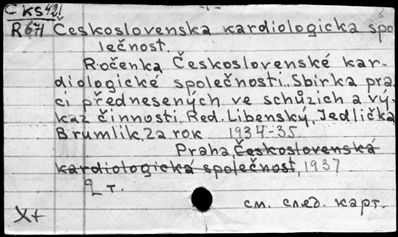 Cks421
R671 Československa kardiologicka spo
lečnost.
Ročenka Československé kar-
diologické společnosti. Sbirka pra
ci přednesených ve schůzich a vý-
kaz činnosti. Red. Libenský, Jedlička
Brumlik. Za rok 1934-35.
Praha, Československá
kardiologická společnost, 1937
2 т.
см. след. карт.
X+